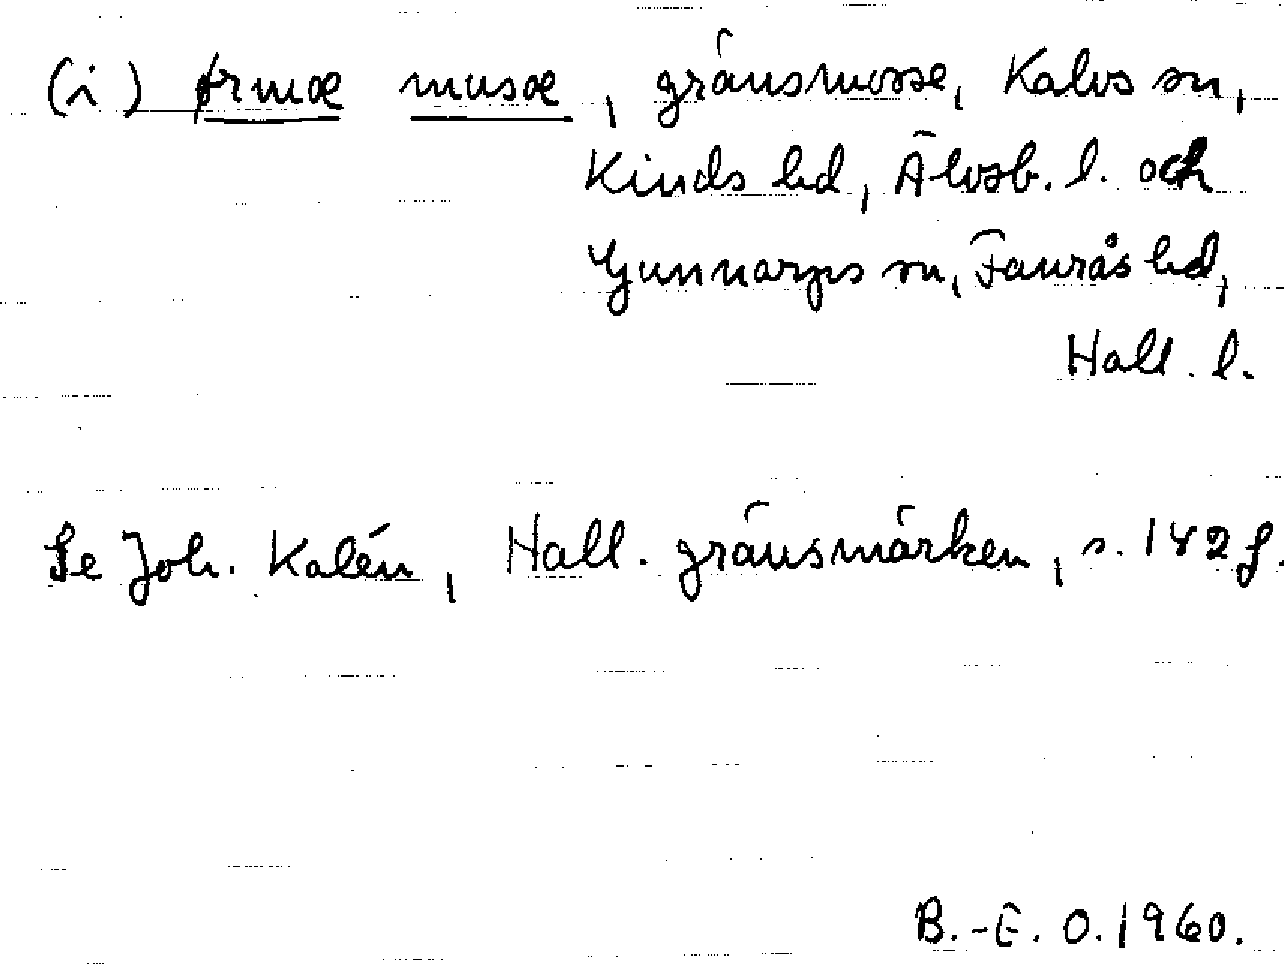 (i) ormæ musæ, gränsmosse, Kalvs sn,
Kinds hd, Älvsb. l. och
Gunnarps sn, Faurås hd,
Hall. l.
Se Joh. Kalén, Hall. gränsmärken, s. 142 f.
B.-E. O. 1960.